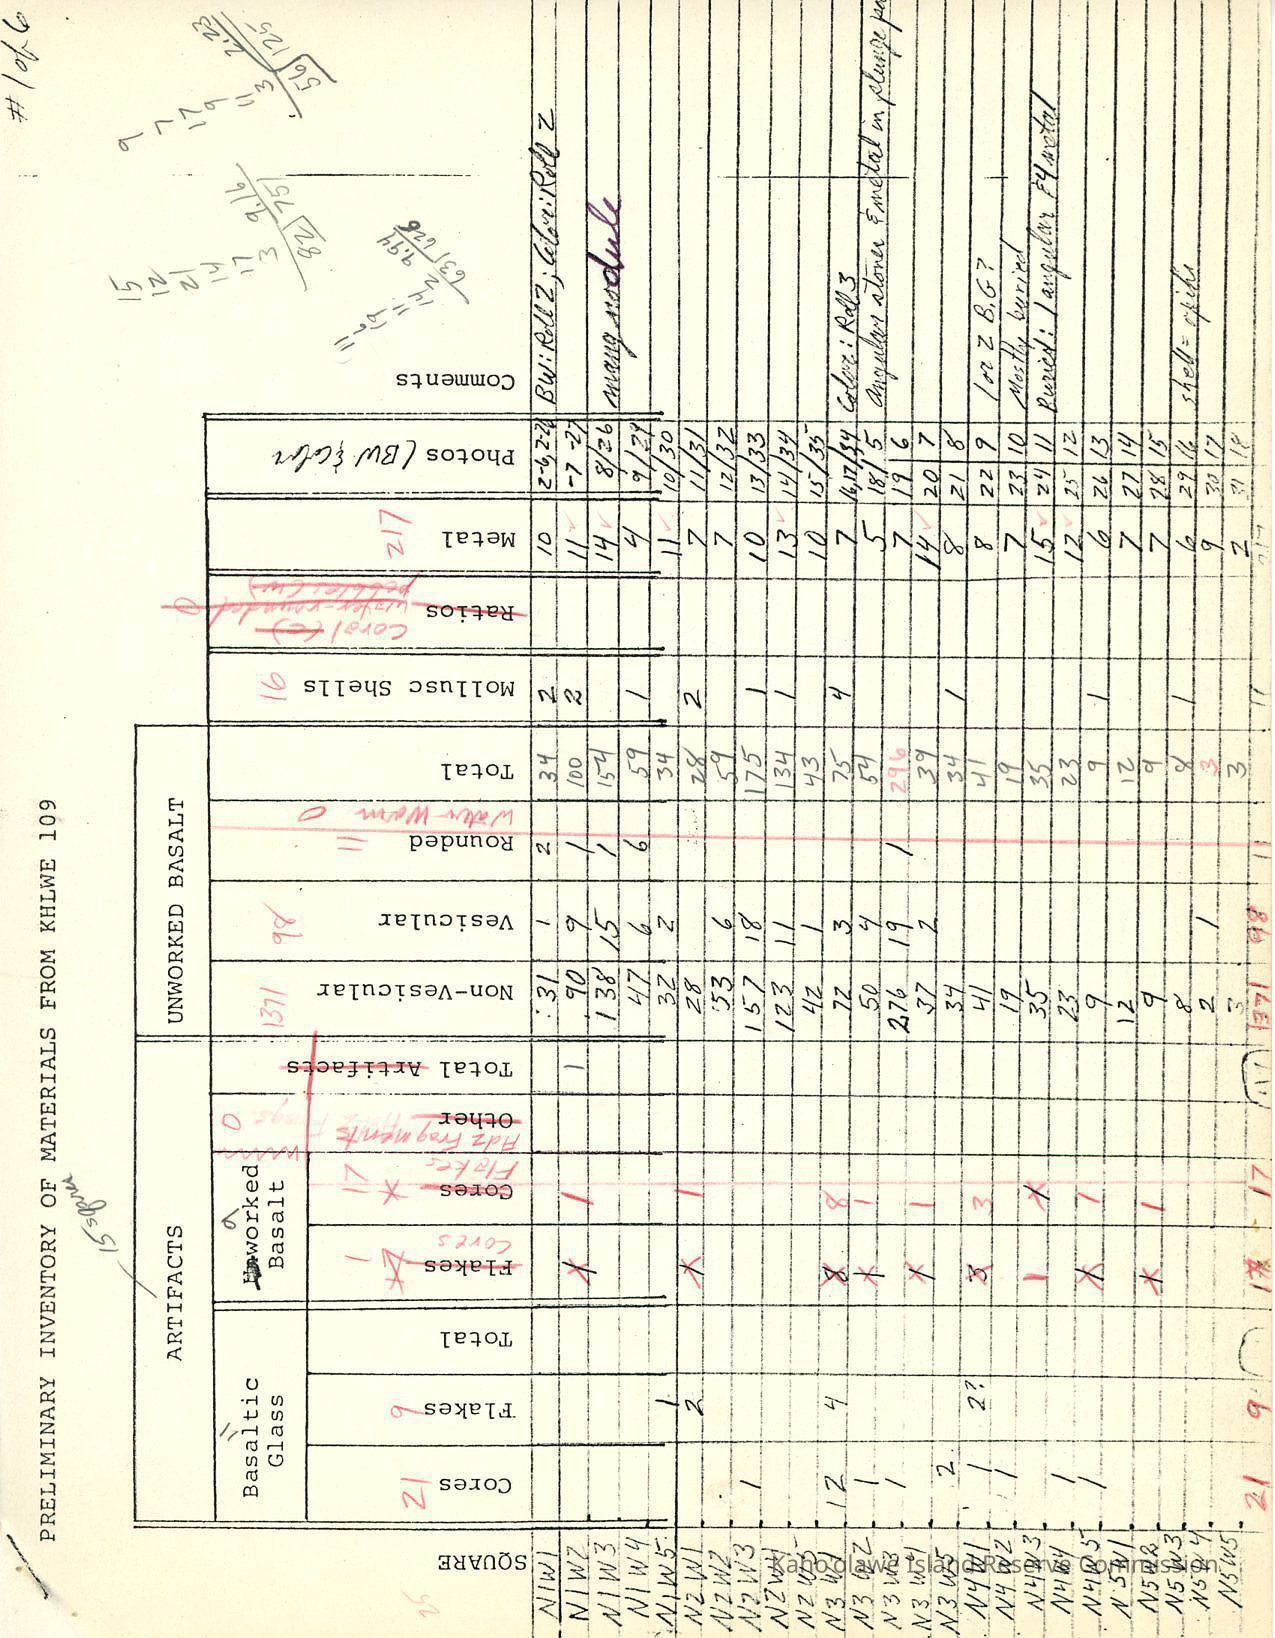 # 1 of 6
PRELIMINARY INVENTORY OF MATERIALS FROM KHLWE 109
15 square
ARTIFACTS
UNWORKED BASALT
Basaltic Glass
Worked Basalt
SQUARE
Cores 21
Flakes 9
Total
Flakes Cores 1
Cores Flakes 17
Other Adz Fragments 0
Total Artifacts
Non-Vesicular 1371
Vesicular 98
Rounded 11
Water Worn 0
Total
Mollusc Shells 16
Ratios
Coral (c)
water-rounded pebbles (w) 0
Metal 217
Photos (BW & Color
Comments
N1W1 31 1 2 34 2 10 2-6, BW: Roll 2; Color: Roll 2
N1W2 1 1 1 90 9 1 100 2 11 -7
N1W3 138 15 1 154 14 8/26 mang nodule
N1W4 47 6 6 59 1 4 9/29
N1W5 1 32 2 34 11 10/30
N2W1 2 1 1 28 28 2 7 11/31
N2W2 53 6 59 7 12/32
N2W3 1 157 18 175 1 10 13/33
N2W4 123 11 134 1 13 14/34
N2W5 42 1 43 10 15/35
N3W1 12 4 8 8 72 3 75 4 7 16,17/34 Color: Roll 3
N3W2 1 1 1 50 4 54 5 18/5 Angular stones & metal in plunge
N3W3 1 276 19 1 296 7 19 6
N3W4 1 1 37 2 39 14 20 7
N3W5 2 34 34 1 8 21 8
N4W1 1 2? 3 3 41 41 8 22 9 1 or 2 B.G?
N4W2 1 19 19 7 23 10 Mostly buried
N4W3 1 1 35 35 15 24 11 Buried: 1 angular & 4 metal
N4W4 1 23 23 12 25 12
N4W5 1 1 1 9 9 1 6 26 13
N5W1 12 12 7 27 14
N5W2 1 1 9 9 7 28 15
N5W3 8 8 1 6 29 16 shell = opihi
N5W4 2 1 3 9 30 17
N5W5 3 3 2 31 18
21 9 17 1371 98 11
2.23
56 125
9.16
82 751
9.94
63 626
Kaho'olawe Island Reserve Commission